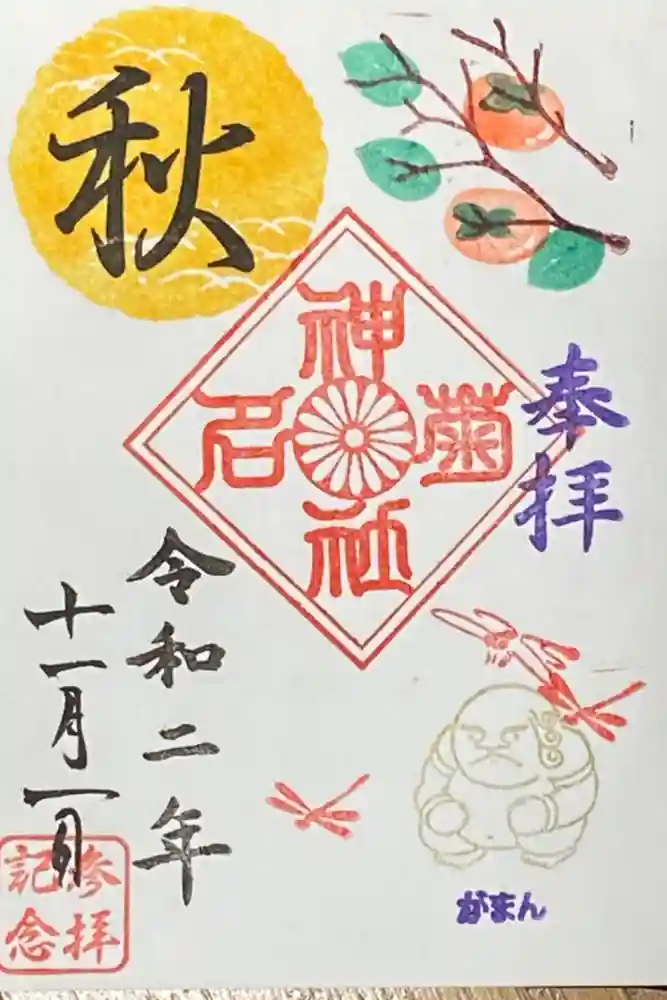 秋
奉拝
菊名
神社
令和二年
十一月一日
参拝
記念
がまん